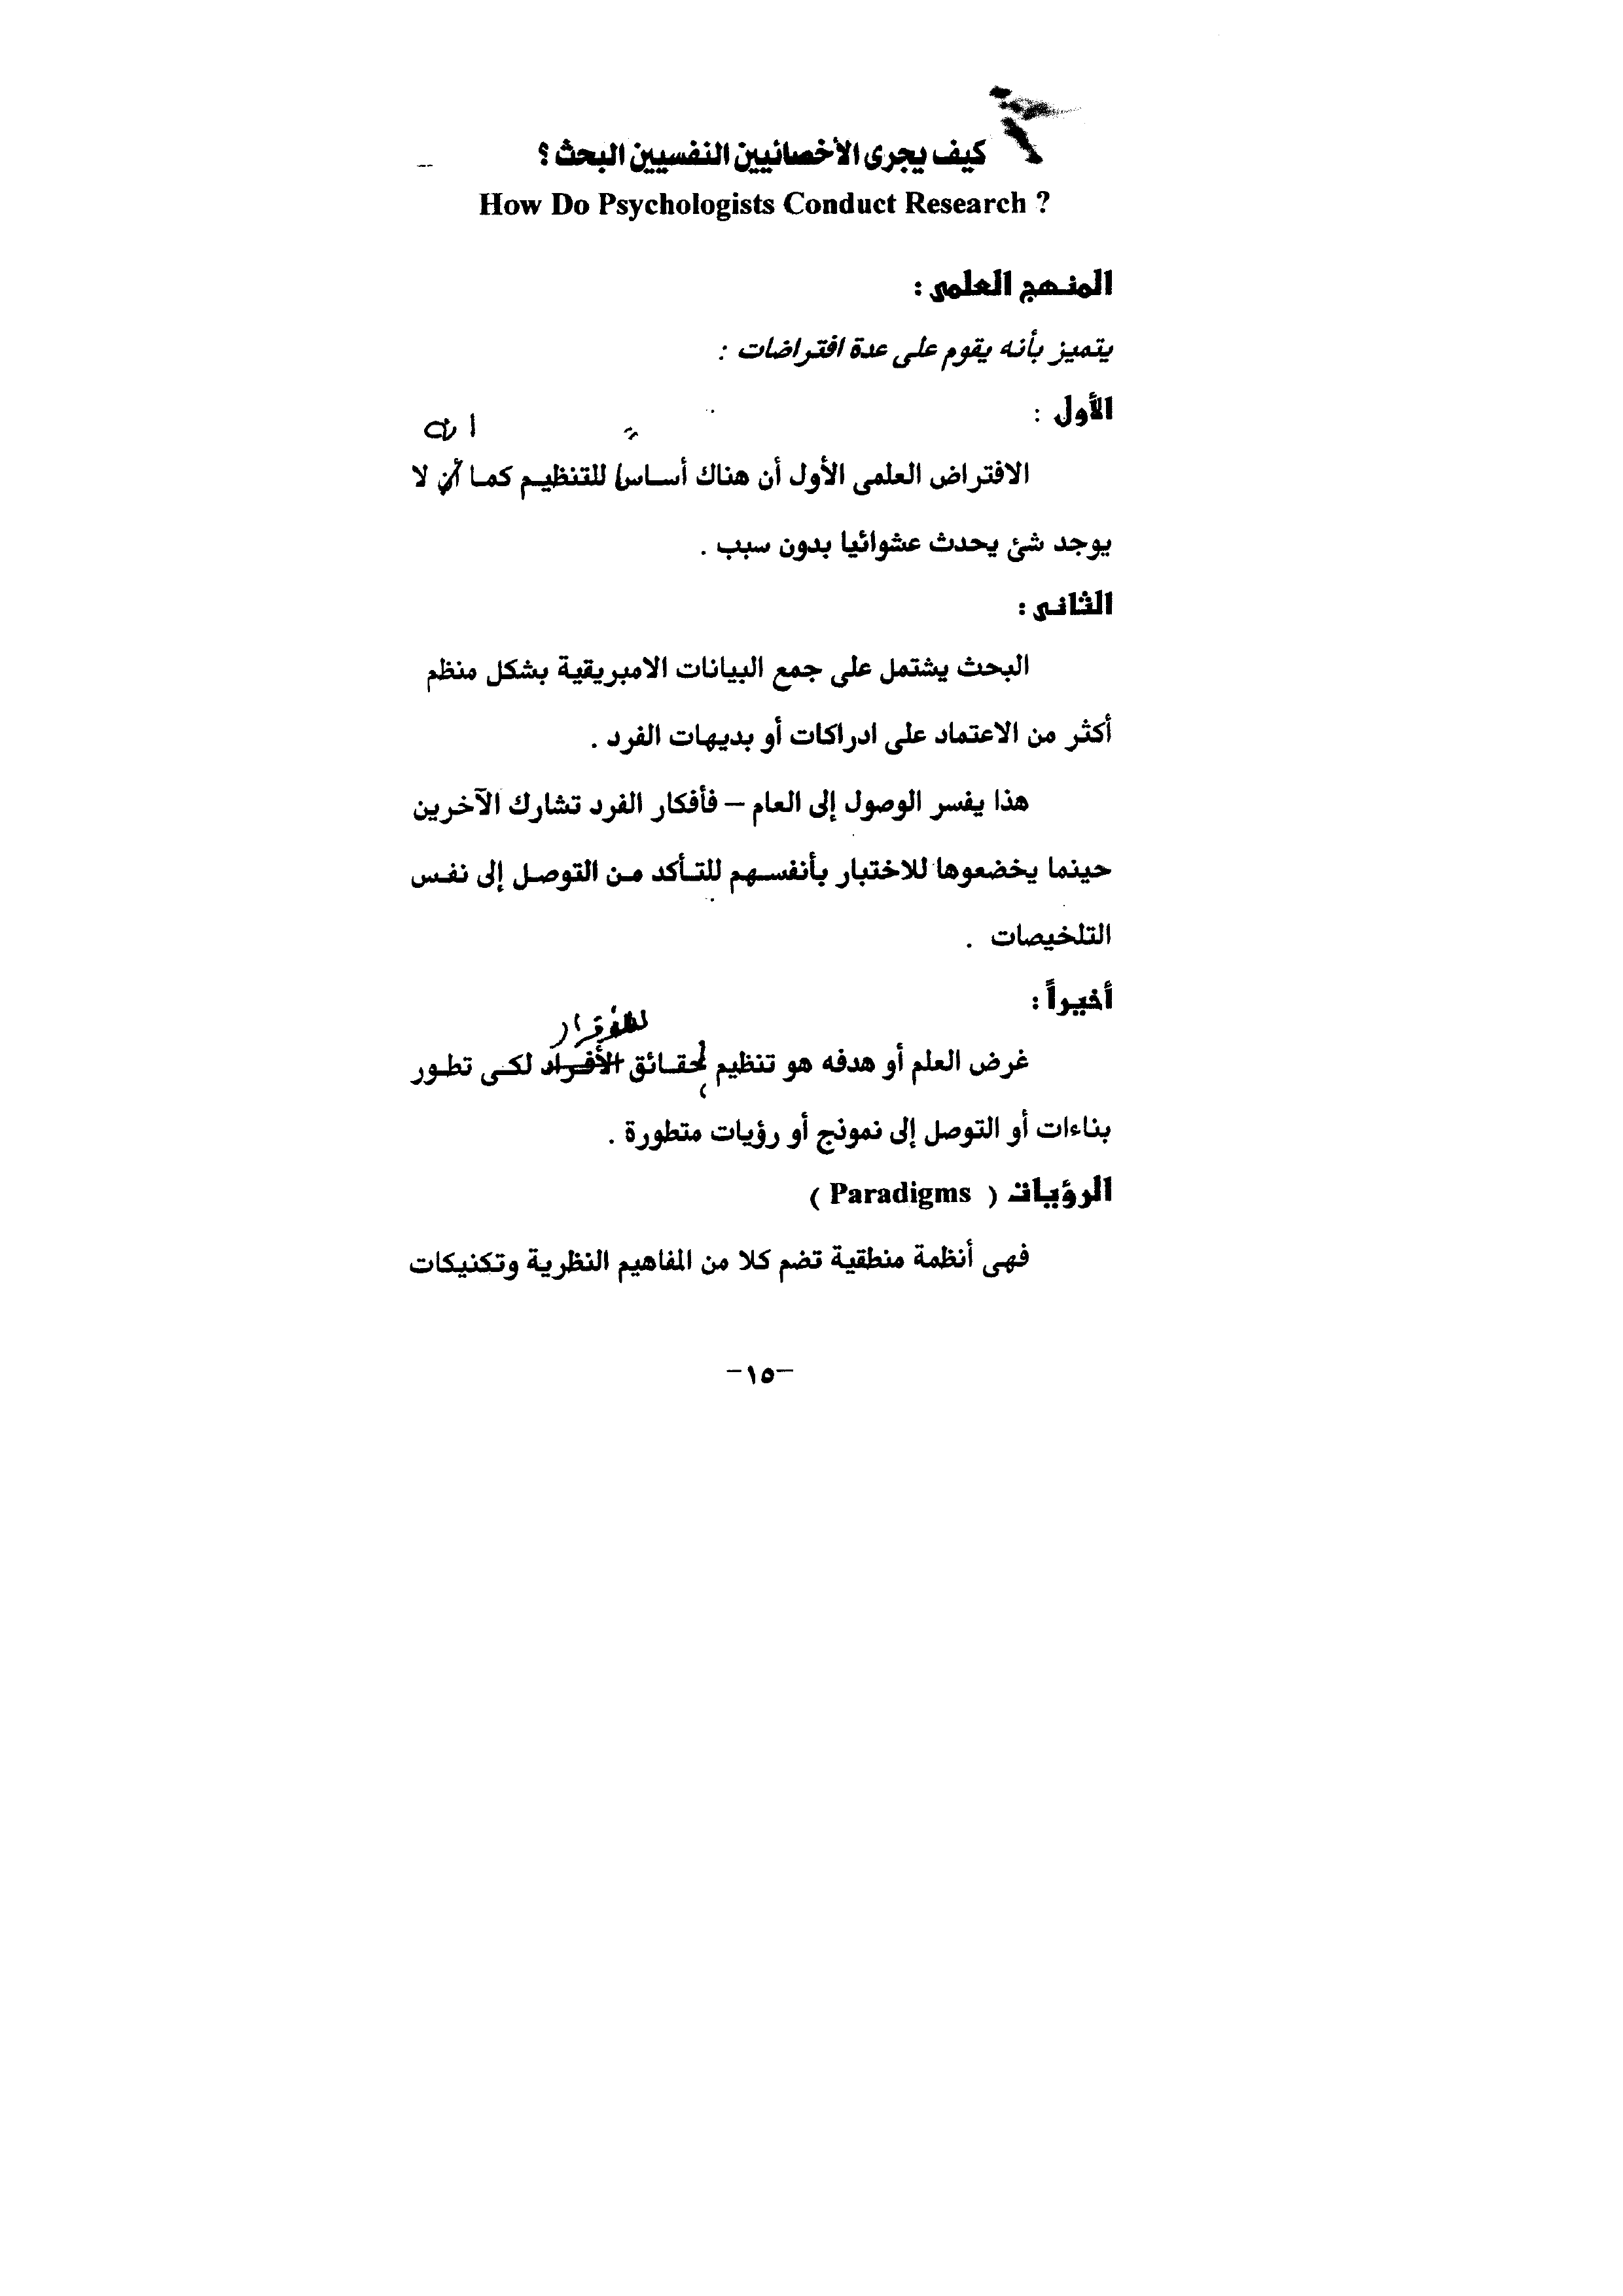 كيف يجرى الأخصائيين النفسيين البحث ؟
How Do Psychologists Conduct Research ?
المنهج العلمى :
يتميز بأنه يقوم على عدة افتراضات :
الأول :
الافتراض العلمى الأول أن هناك أساسا للتنظيم كما أن لا
يوجد شئ يحدث عشوائيا بدون سبب .
الثانى :
البحث يشتمل على جمع البيانات الامبريقية بشكل منظم
أكثر من الاعتماد على ادراكات أو بديهات الفرد .
هذا يفسر الوصول إلى العام – فأفكار الفرد تشارك الآخرين
حينما يخضعوها للاختبار بأنفسهم للتأكد من التوصل إلى نفس
التلخيصات .
أخيراً :
غرض العلم أو هدفه هو تنظيم لحقائق الأفراد لكى تطور
بناءات أو التوصل إلى نموذج أو رؤيات متطورة .
الرؤيات ( Paradigms )
فهى أنظمة منطقية تضم كلا من المفاهيم النظرية وتكنيكات
-١٥-